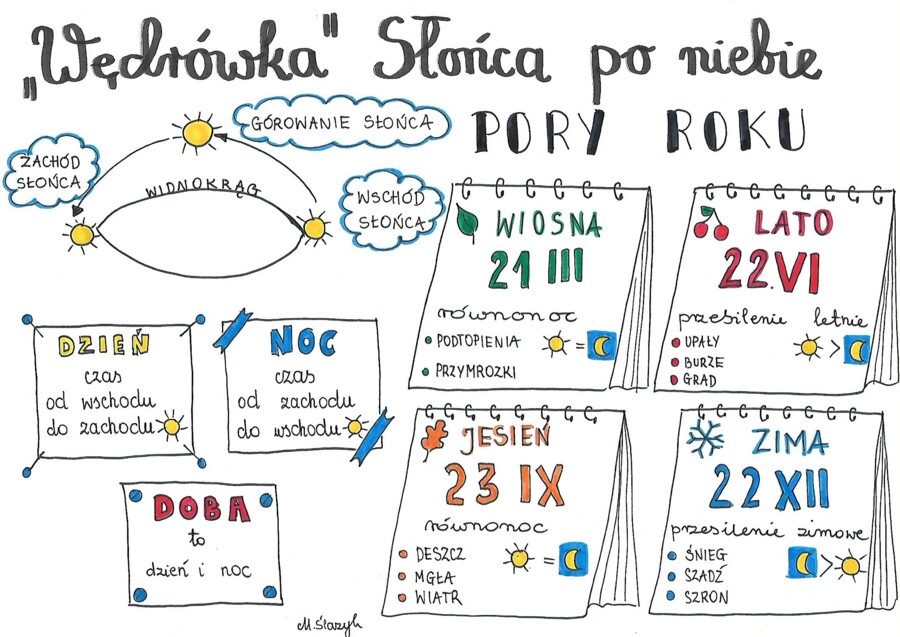 „Wędrówka" Słońca po niebie
GÓROWANIE SŁOŃCA
ZACHÓD
SŁOŃCA
WIDNOKRĄG
WSCHÓD
SŁOŃCA
DZIEŃ
czas
od wschodu
do zachodu
NOC
czas
od zachodu
do wschodu
DOBA
to
dzień i noc
PORY ROKU
WIOSNA
21 III
równonoc
PODTOPIENIA
=
PRZYMROZKI
LATO
22.VI
przesilenie letnie
UPAŁY
BURZE
GRAD
>
JESIEŃ
23 IX
równonoc
DESZCZ
MGŁA
WIATR
=
ZIMA
22 XII
przesilenie zimowe
ŚNIEG
SZADŹ
SZRON
>